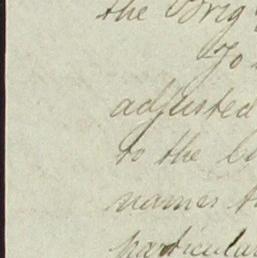 the Brig
To
adjusted
to the
names
particular